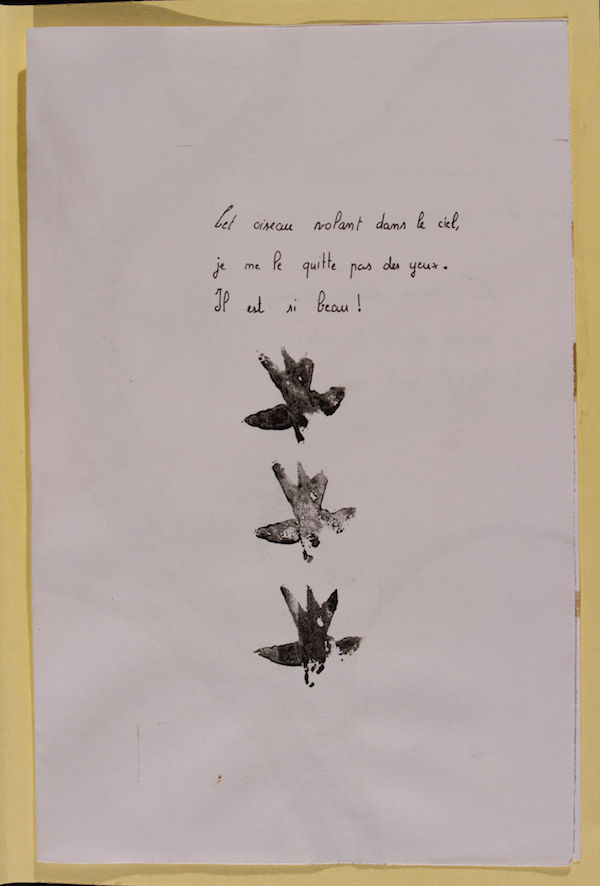 Cet oiseau volant dans le ciel,
je ne le quitte pas des yeux.
Il est si beau !